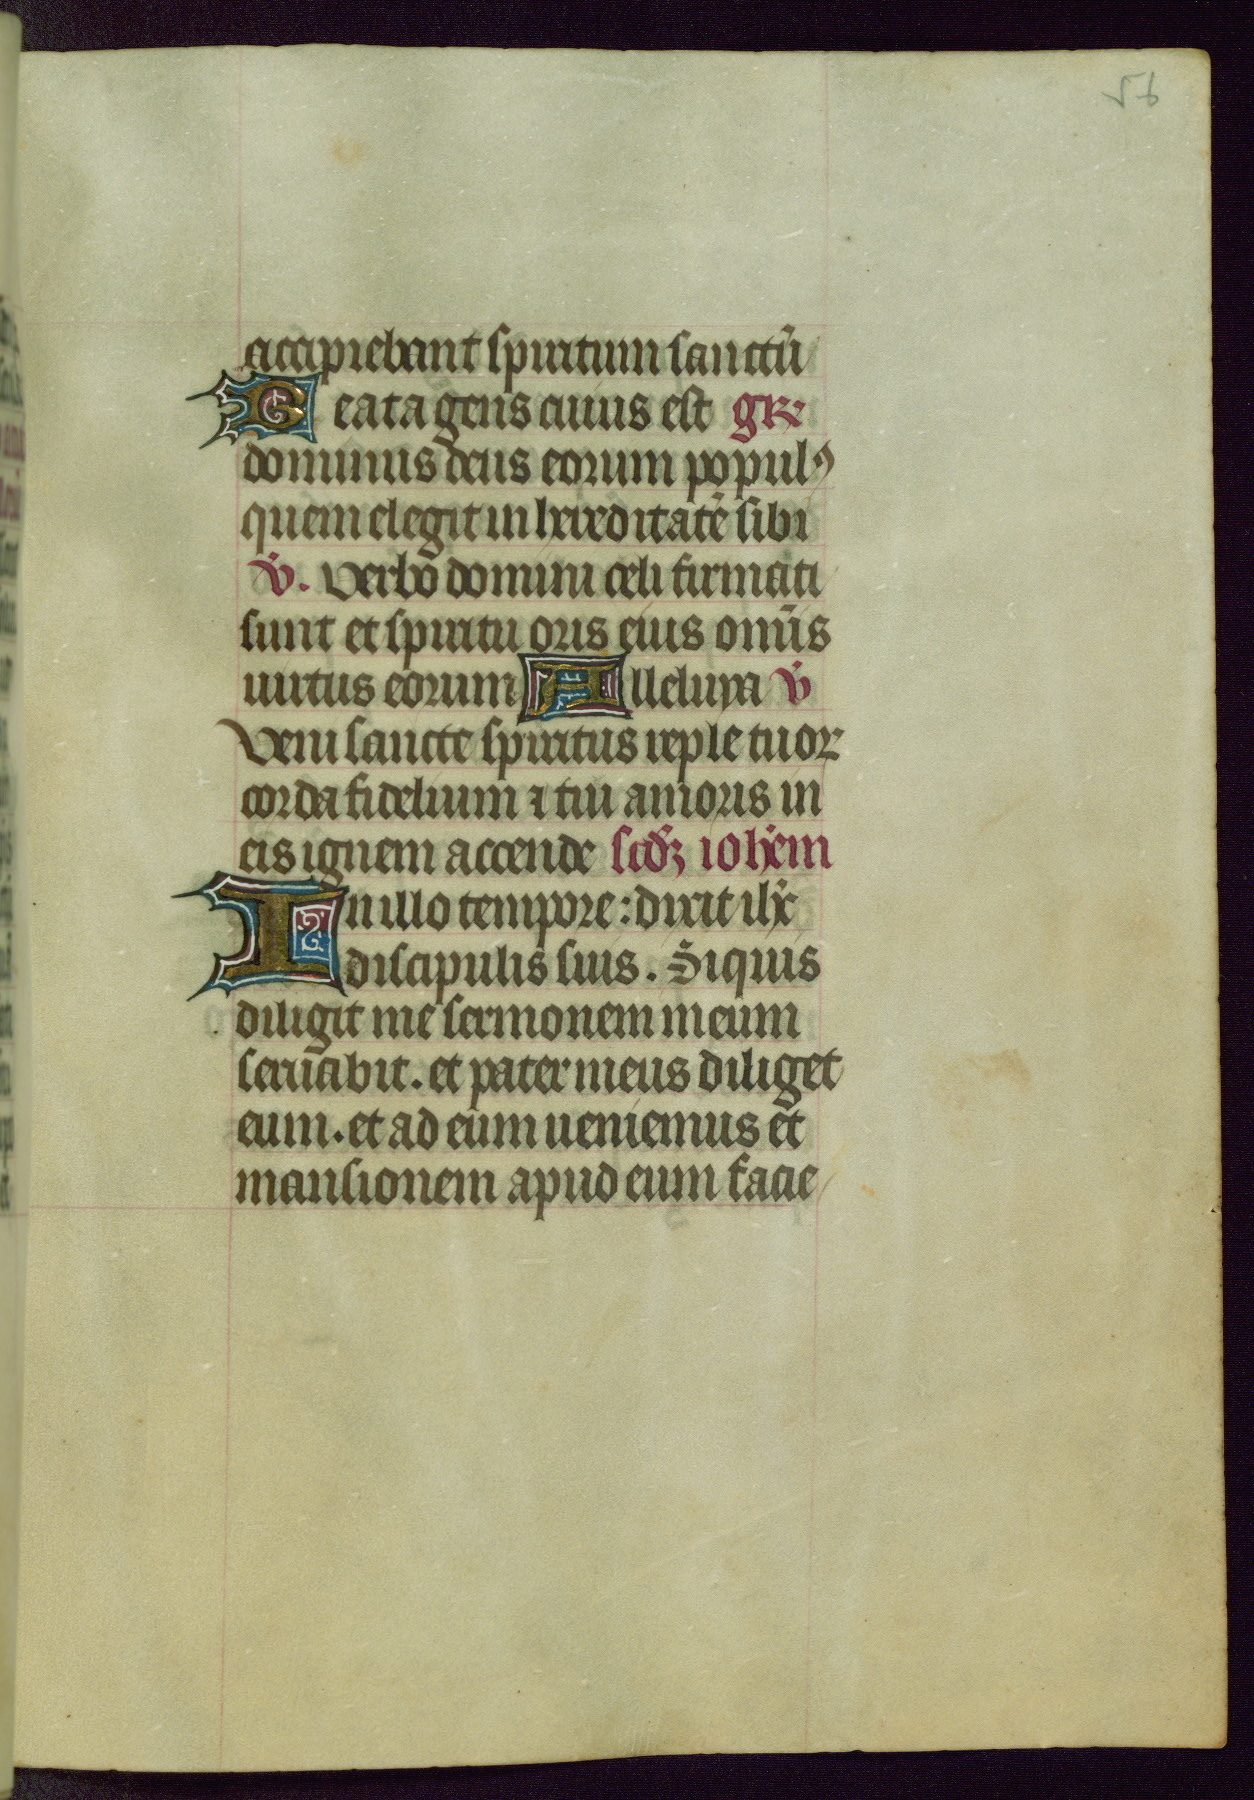 56
accipiebant spiritum sanctū
Beata gens cuius est gr̄
dominus deus eorum populꝰ
quem elegit in hereditatē sibi
v̄. Verbo domini celi firmati
sunt et spiritu oris eius omīs
uirtus eorum Alleluya v̄
Veni sancte spiritus reple tuoꝝ
corda fidelium ⁊ tui amoris in
eis ignem accende scd̄ꝫ ioh̄em
In illo tempore: dixit ihc̄
discipulis suis. Siquis
diligit me sermonem meum
seruabit. et pater meus diliget
eum. et ad eum ueniemus et
mansionem apud eum facie